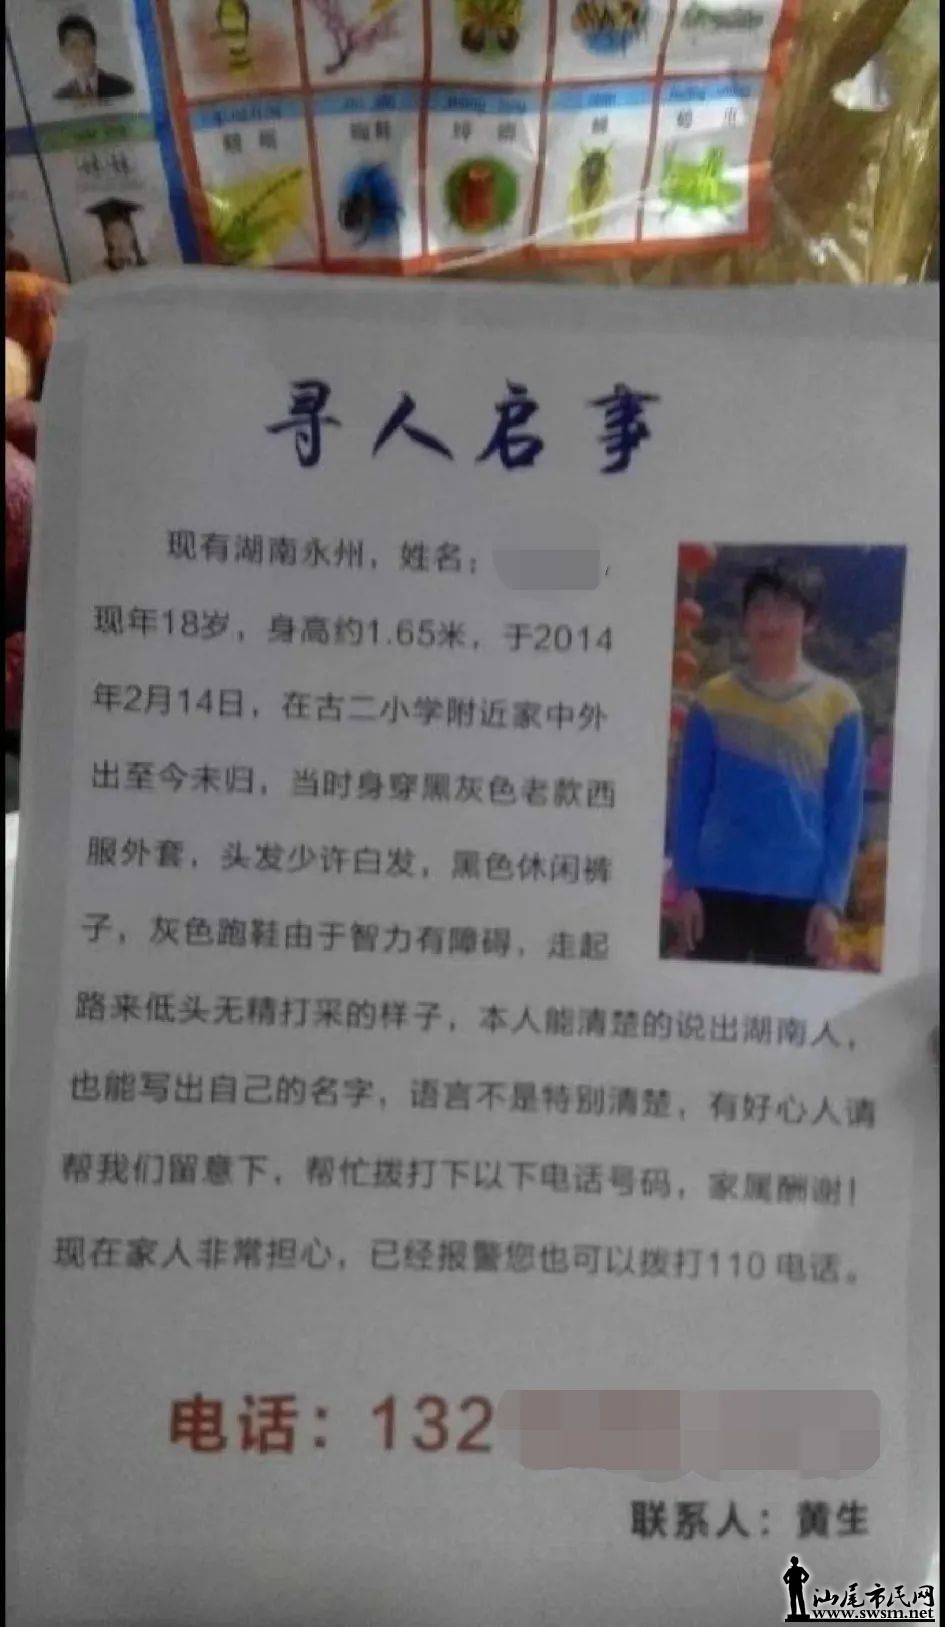 妹妹
寻人启事
现有湖南永州，姓名：
现年18岁，身高约1.65米，于2014
年2月14日，在古二小学附近家中外
出至今未归，当时身穿黑灰色老款西
服外套，头发少许白发，黑色休闲裤
子，灰色跑鞋由于智力有障碍，走起
路来低头无精打采的样子，本人能清楚的说出湖南人，
也能写出自己的名字，语言不是特别清楚，有好心人请
帮我们留意下，帮忙拨打下以下电话号码，家属酬谢！
现在家人非常担心，已经报警您也可以拨打110电话。
电话：132
联系人：黄生
汕尾市民网
www.swsm.net